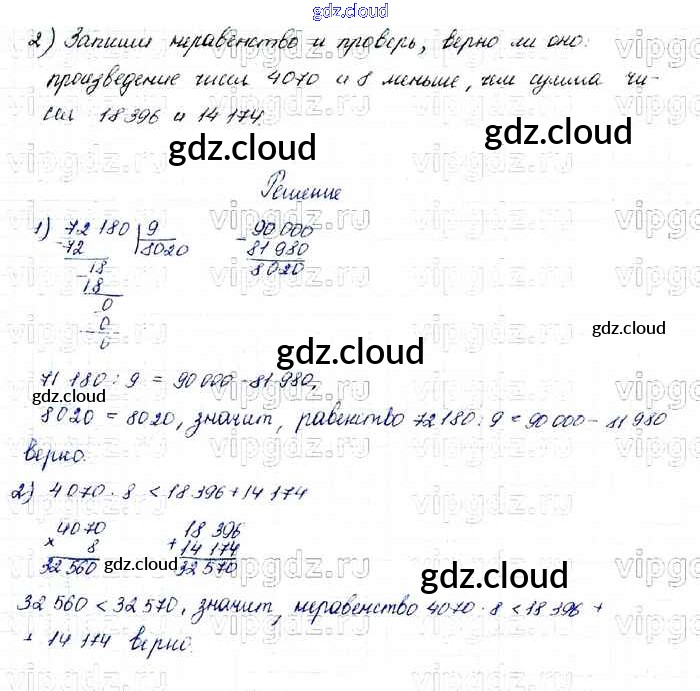 gdz.cloud
2) Запиши неравенство и проверь, верно ли оно:
произведение чисел 4070 и 8 меньше, чем сумма чи-
сел 18 396 и 14 174.
gdz.cloud gdz.cloud
Решение
1) 72 180 | 9 - 90 000
- 72 8020 81 980
- 18 8020
18
- 0
0
0
gdz.cloud
gdz.cloud
71 180 : 9 = 90 000 - 81 980,
gdz.cloud
8020 = 8020, значит, равенство 72 180 : 9 = 90 000 - 81 980
верно.
2) 4070 · 8 < 18 396 + 14 174
× 4070 + 18 396
8 14 174
32 560 gdz.cloud 32 570 gdz.cloud
32 560 < 32 570, значит, неравенство 4070 · 8 < 18 396 +
+ 14 174 верно.